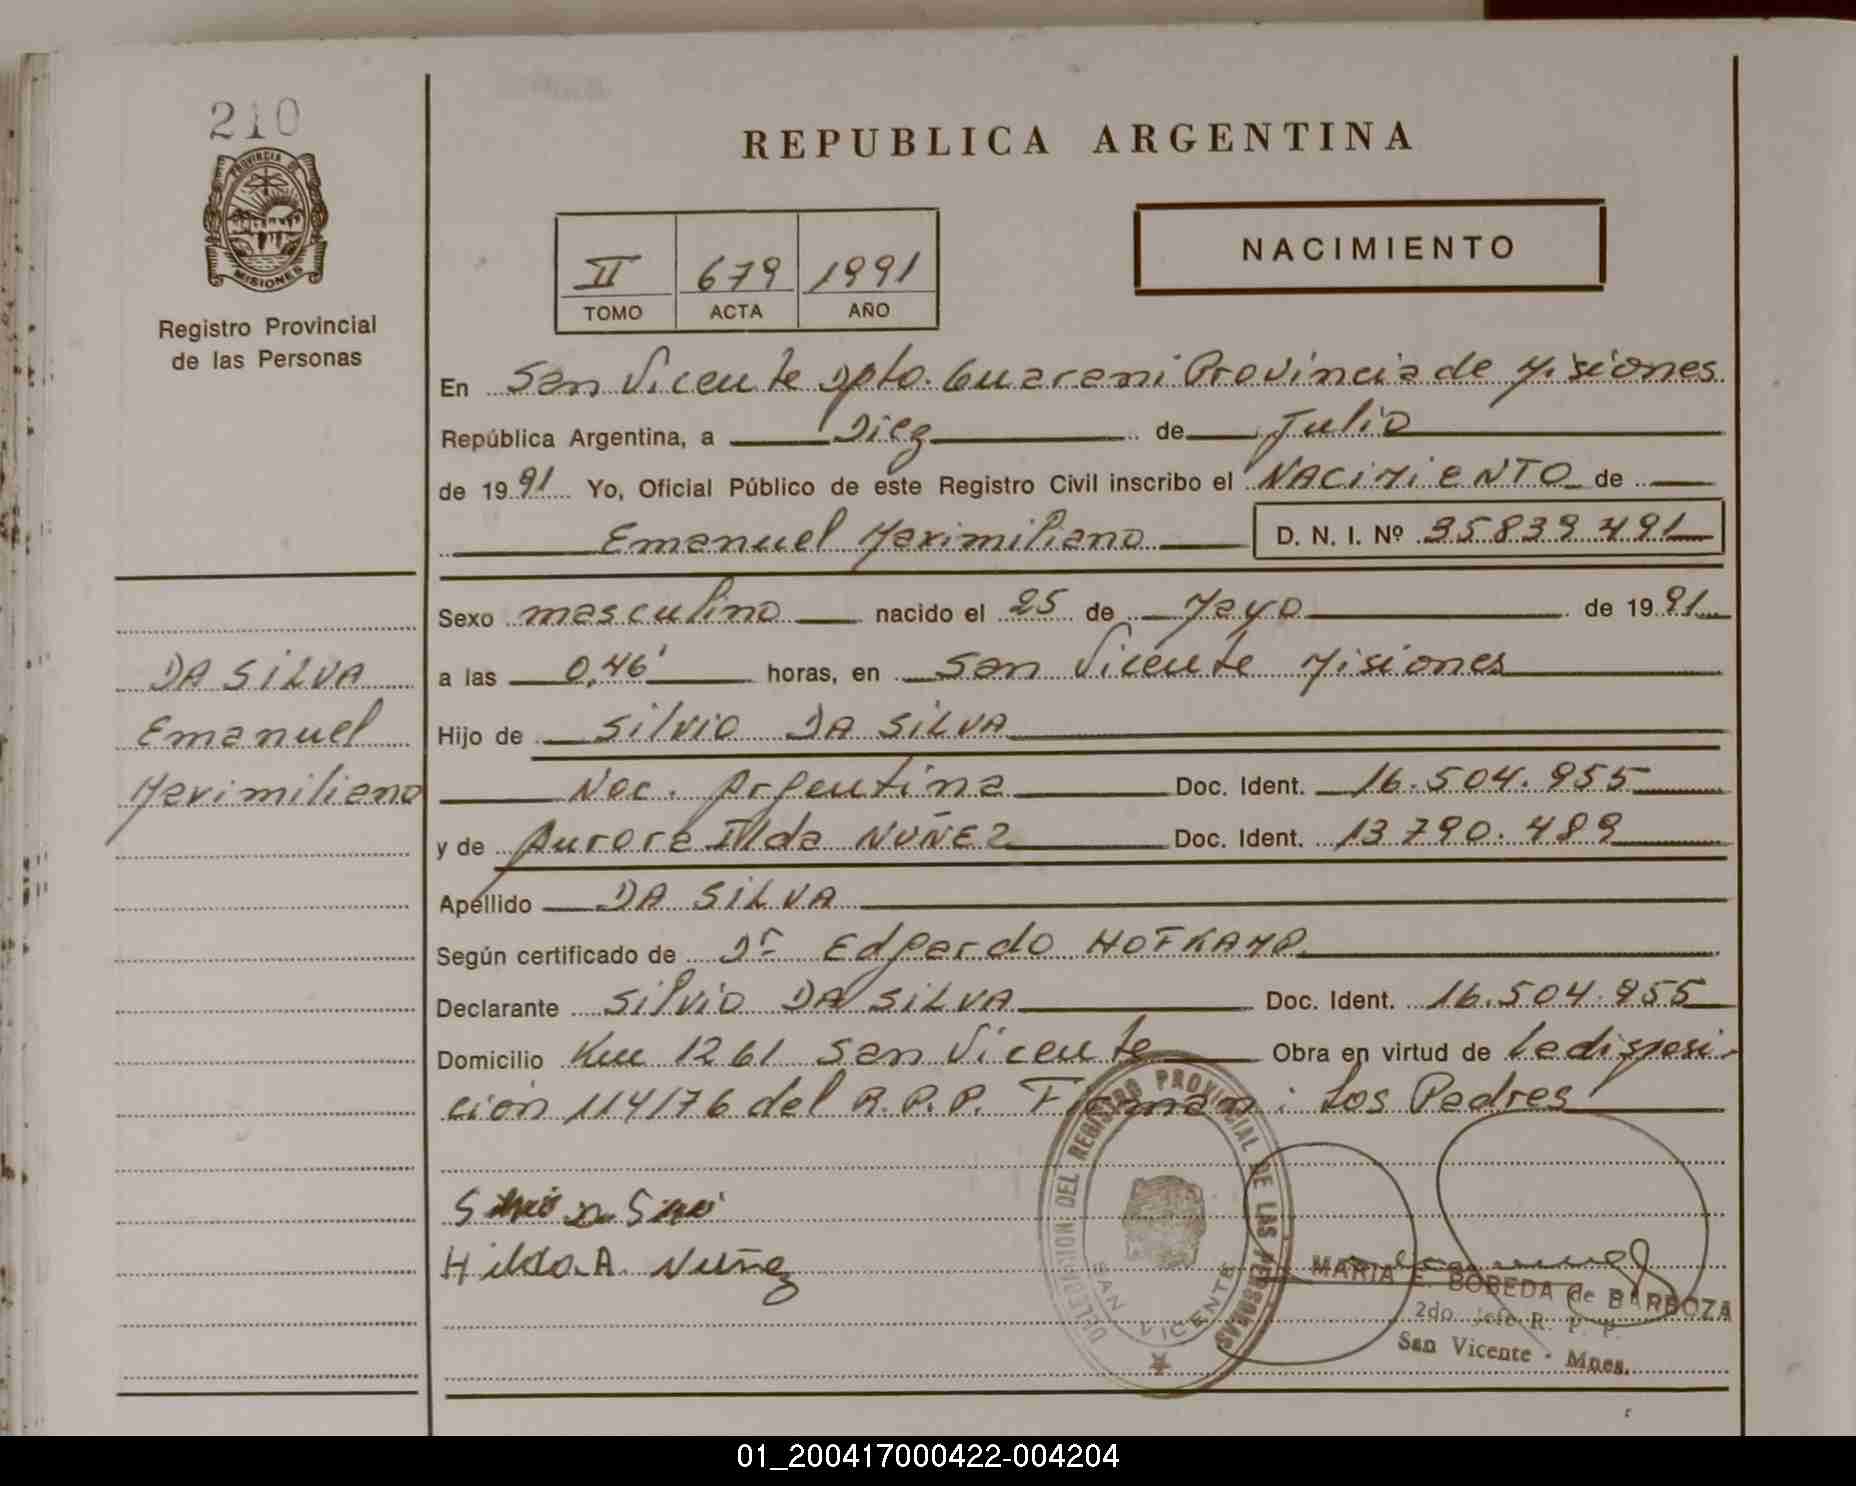 210
PROVINCIA DE
MISIONES
Registro Provincial
de las Personas
REPUBLICA ARGENTINA
II 679 1991
TOMO ACTA AÑO
NACIMIENTO
En San Vicente Dpto. Guarani Provincia de Misiones
República Argentina, a Diez de Julio
de 1991 Yo, Oficial Público de este Registro Civil inscribo el NACIMIENTO de
Emanuel Maximiliano D. N. I. Nº 35839491
Sexo masculino nacido el 25 de Mayo de 1991
a las 0,46' horas, en San Vicente Misiones
Hijo de Silvio DA SILVA
Nac. Argentina Doc. Ident. 16.504.955
y de Aurora Ilda NUÑEZ Doc. Ident. 13790.489
Apellido DA SILVA
Según certificado de Dr Edgardo HOFKAMP
Declarante Silvio DA SILVA Doc. Ident. 16.504.955
Domicilio Km 1261 San Vicente Obra en virtud de la disposi-
ción 114/76 del R.P.P. Firman: Los Padres
DA SILVA
Emanuel
Maximiliano
Hilda A. Nuñez
DELEGACION DEL REGISTRO PROVINCIAL DE LAS PERSONAS
SAN VICENTE
MARIA E. BOBEDA de BARBOZA
2do. jefe R. P. P.
San Vicente - Mnes.
01_200417000422-004204